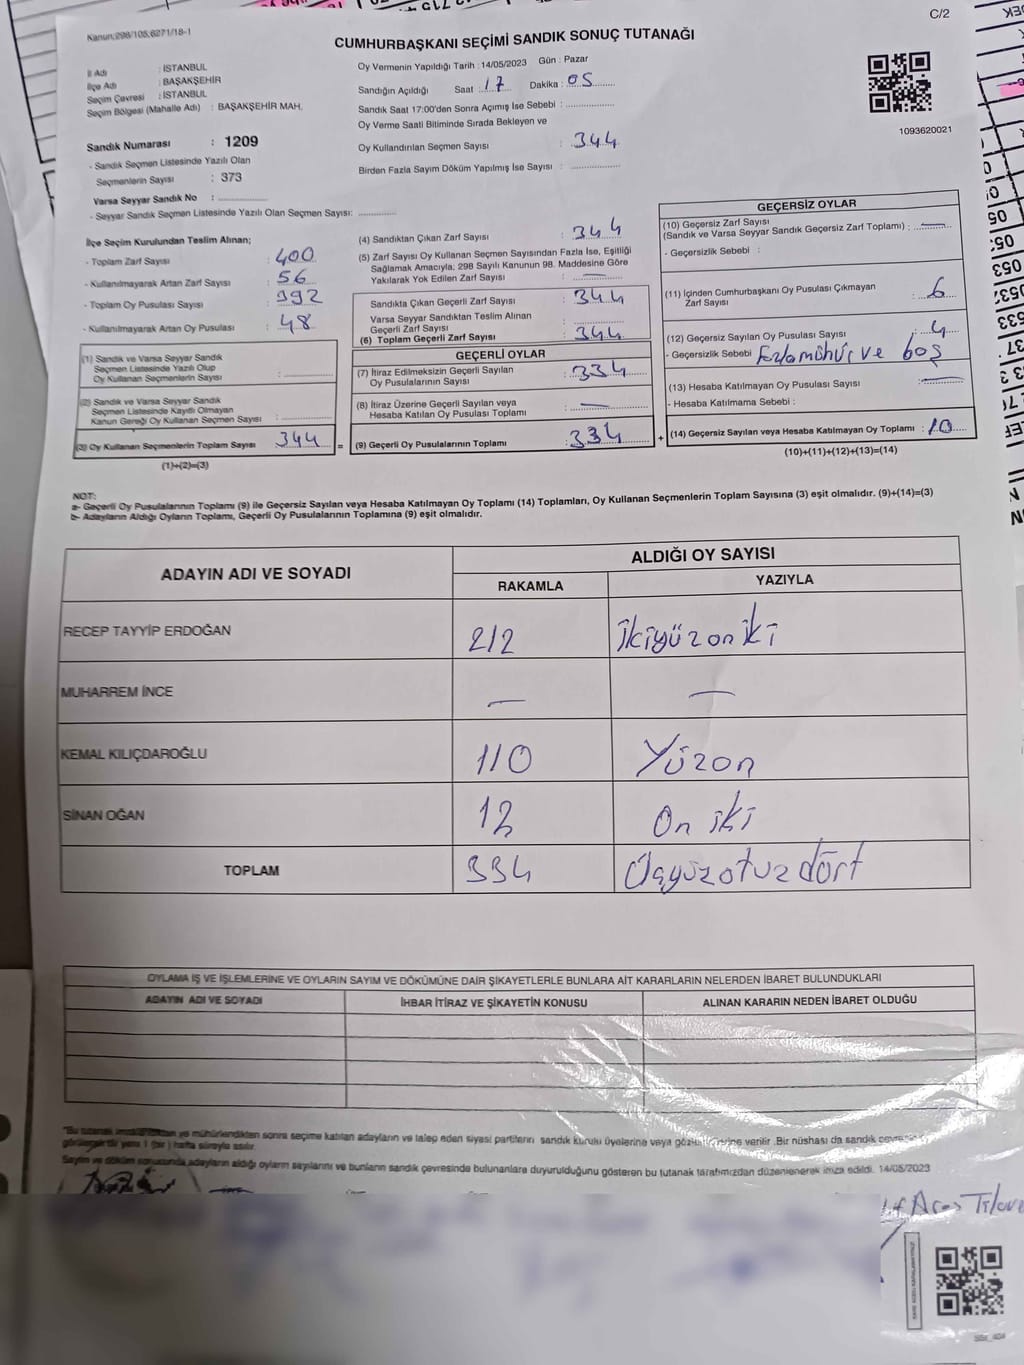 C/2
Kanun;298/105,6271/18-1
CUMHURBAŞKANI SEÇİMİ SANDIK SONUÇ TUTANAĞI
İl Adı : İSTANBUL
İlçe Adı : BAŞAKŞEHİR
Seçim Çevresi : İSTANBUL
Seçim Bölgesi (Mahalle Adı) : BAŞAKŞEHİR MAH.
Sandık Numarası : 1209
- Sandık Seçmen Listesinde Yazılı Olan
Seçmenlerin Sayısı : 373
Varsa Seyyar Sandık No :
- Seyyar Sandık Seçmen Listesinde Yazılı Olan Seçmen Sayısı:
Oy Vermenin Yapıldığı Tarih : 14/05/2023 Gün : Pazar
Sandığın Açıldığı Saat : 17 Dakika : 05
Sandık Saat 17:00'den Sonra Açımış İse Sebebi :
Oy Verme Saati Bitiminde Sırada Bekleyen ve
Oy Kullandırılan Seçmen Sayısı : 344
Birden Fazla Sayım Döküm Yapılmış İse Sayısı :
1093620021
İlçe Seçim Kurulundan Teslim Alınan;
- Toplam Zarf Sayısı : 400
- Kullanılmayarak Artan Zarf Sayısı : 56
- Toplam Oy Pusulası Sayısı : 392
- Kullanılmayarak Artan Oy Pusulası : 48
(1) Sandık ve Varsa Seyyar Sandık
Seçmen Listesinde Yazılı Olup
Oy Kullanan Seçmenlerin Sayısı :
(2) Sandık ve Varsa Seyyar Sandık
Seçmen Listesinde Kayıtlı Olmayan
Kanun Gereği Oy Kullanan Seçmen Sayısı :
(3) Oy Kullanan Seçmenlerin Toplam Sayısı : 344 =
(1)+(2)=(3)
(4) Sandıktan Çıkan Zarf Sayısı : 344
(5) Zarf Sayısı Oy Kullanan Seçmen Sayısından Fazla İse, Eşitliği
Sağlamak Amacıyla; 298 Sayılı Kanunun 98. Maddesine Göre
Yakılarak Yok Edilen Zarf Sayısı : —
Sandıkta Çıkan Geçerli Zarf Sayısı : 344
Varsa Seyyar Sandıktan Teslim Alınan
Geçerli Zarf Sayısı :
(6) Toplam Geçerli Zarf Sayısı : 344
GEÇERLİ OYLAR
(7) İtiraz Edilmeksizin Geçerli Sayılan
Oy Pusulalarının Sayısı : 334
(8) İtiraz Üzerine Geçerli Sayılan veya
Hesaba Katılan Oy Pusulası Toplamı : —
(9) Geçerli Oy Pusulalarının Toplamı : 334 +
GEÇERSİZ OYLAR
(10) Geçersiz Zarf Sayısı
(Sandık ve Varsa Seyyar Sandık Geçersiz Zarf Toplamı) : —
- Geçersizlik Sebebi :
(11) İçinden Cumhurbaşkanı Oy Pusulası Çıkmayan
Zarf Sayısı : 6
(12) Geçersiz Sayılan Oy Pusulası Sayısı : 4
- Geçersizlik Sebebi Fazla mühür ve boş
(13) Hesaba Katılmayan Oy Pusulası Sayısı : —
- Hesaba Katılmama Sebebi :
(14) Geçersiz Sayılan veya Hesaba Katılmayan Oy Toplamı : 10
(10)+(11)+(12)+(13)=(14)
NOT:
a- Geçerli Oy Pusulalarının Toplamı (9) ile Geçersiz Sayılan veya Hesaba Katılmayan Oy Toplamı (14) Toplamları, Oy Kullanan Seçmenlerin Toplam Sayısına (3) eşit olmalıdır. (9)+(14)=(3)
b- Adayların Aldığı Oyların Toplamı, Geçerli Oy Pusulalarının Toplamına (9) eşit olmalıdır.
ADAYIN ADI VE SOYADI ALDIĞI OY SAYISI
RAKAMLA YAZIYLA
RECEP TAYYİP ERDOĞAN 212 ikiyüz on iki
MUHARREM İNCE — —
KEMAL KILIÇDAROĞLU 110 Yüzon
SİNAN OĞAN 12 On iki
TOPLAM 334 Üçyüzotuz dört
OYLAMA İŞ VE İŞLEMLERİNE VE OYLARIN SAYIM VE DÖKÜMÜNE DAİR ŞİKAYETLERLE BUNLARA AİT KARARLARIN NELERDEN İBARET BULUNDUKLARI
ADAYIN ADI VE SOYADI İHBAR İTİRAZ VE ŞİKAYETİN KONUSU ALINAN KARARIN NEDEN İBARET OLDUĞU
"Bu tutanak ve mühürlendikten sonra seçime katılan adayların ve talep eden siyasi partilerin sandık kurulu üyelerine veya verilir .Bir nüshası da sandık
1 (bir) hafta süreyle asılır.
Sayım ve döküm sonucunda adayların aldığı oyların sayılarını ve bunların sandık çevresinde bulunanlara duyurulduğunu gösteren bu tutanak tarafımızdan düzenlenerek imza edildi. 14/05/2023